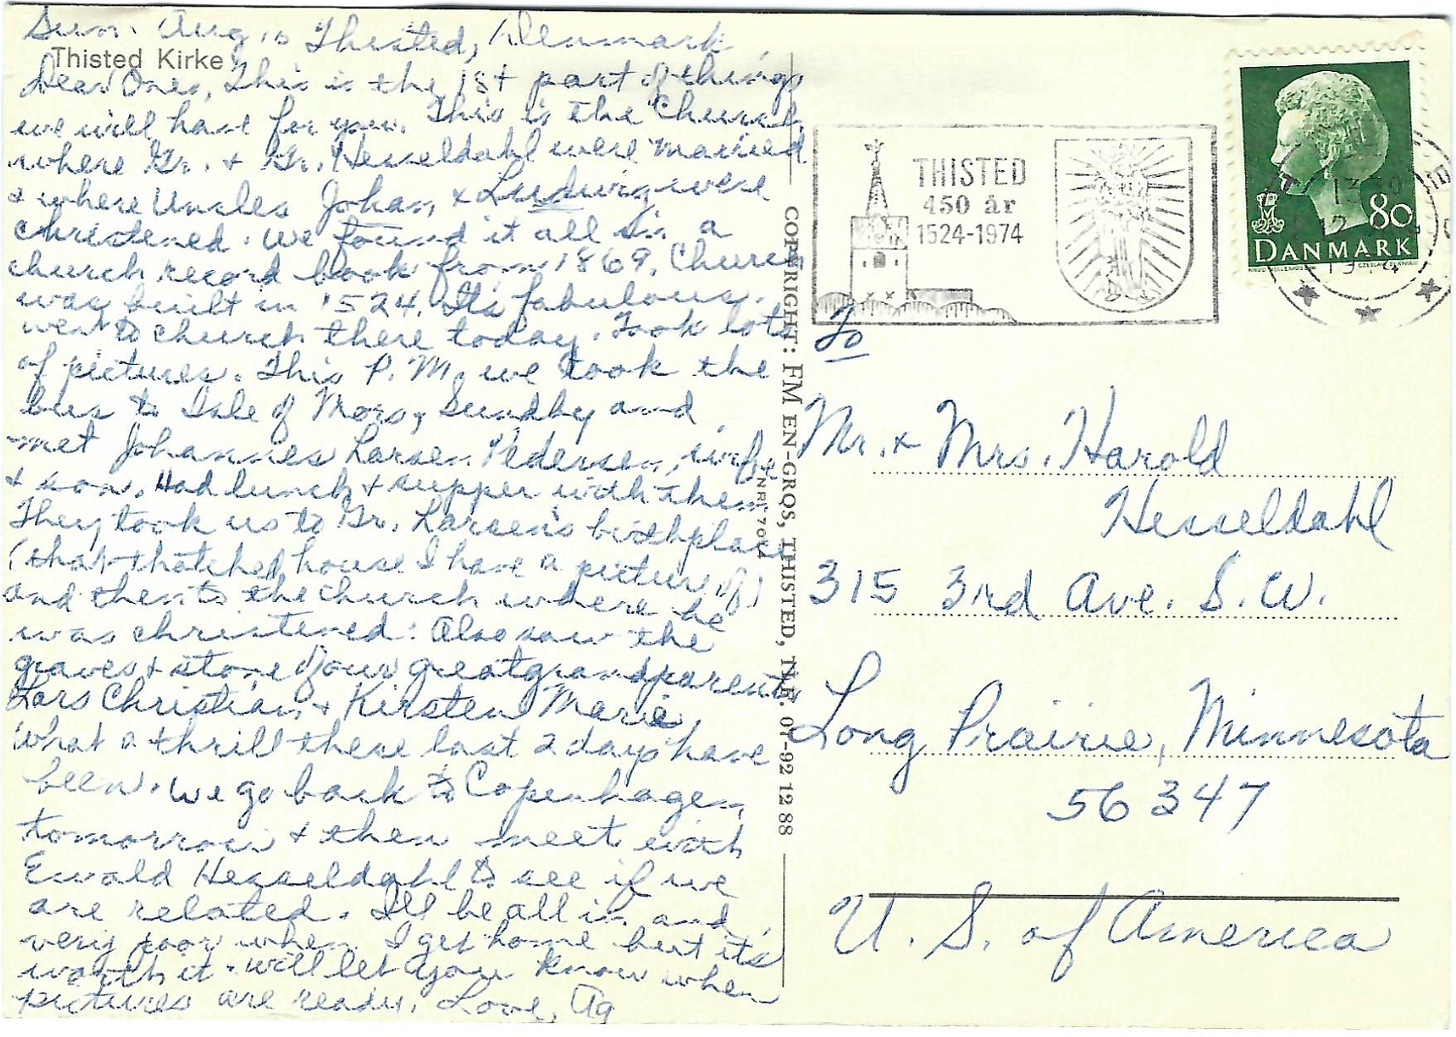 Thisted Kirke
Sun. Aug. Thisted, Denmark
Dear Ones, This is the 1st part of things
we will have for you. This is the Church
where Gr. + Gr. Hesseldahl were married
+ where Uncles Johan + Ludwig were
christened. We found it all in a
church record book from 1869. Church
was built in 1524. Its fabulous.
went to church there today. Took lots
of pictures. This P.M. we took the
bus to Isle of Mors, Sundby and
met Johannes Larsen Pedersen, wife
+ son. Had lunch + supper with them
They took us to Gr. Larsen's birthplace
(that thatched house I have a picture of)
and then to the church where he
was christened. Also saw the
graves + stone of our greatgrandparents
Lars Christian + Kirsten Marie.
What a thrill these last 2 days have
been. We go back to Copenhagen
tomorrow + then meet with
Ewald Hesseldahl to see if we
are related. I'll be all in and
very poor when I get home but its
worth it. Will let you know when
pictures are ready. Love, Ag
COPERIGHT: FM EN-GROS, THISTED, TLF. 07-92 12 88
THISTED
450 år
1524-1974
80
DANMARK
To
Mr. + Mrs. Harold
Hesseldahl
315 3rd Ave. S.W.
Long Prairie, Minnesota
56347
U. S. of America